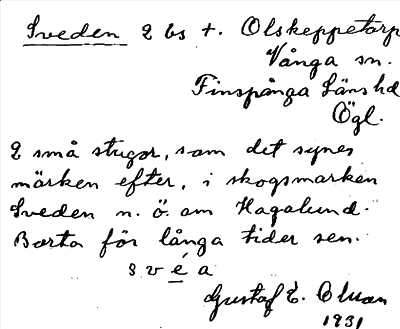 Sveden 2 bs t. Olskeppetorp
Vånga sn.
Finspånga Länshd
Ögl.
2 små stugor, som det synes
märken efter, i skogsmarken
Sveden n. ö. om Hagalund.
Borta för långa tider sen.
svéa
Gustaf E.
1931